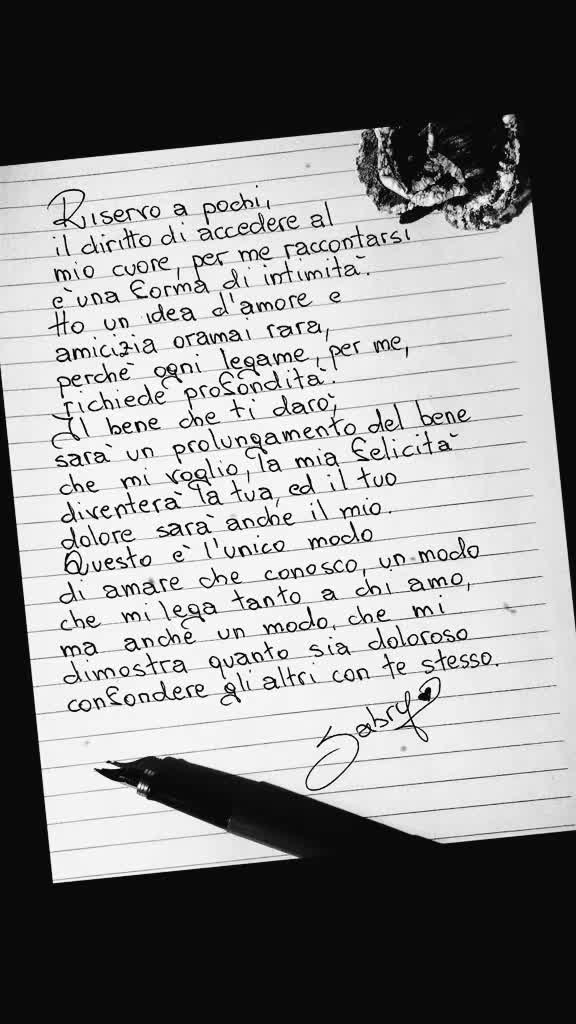 Riservo a pochi,
il diritto di accedere al
mio cuore, per me raccontarsi
è una forma di intimità.
Ho un idea d'amore e
amicizia oramai rara,
perchè ogni legame, per me,
richiede profondità.
Il bene che ti darò,
sarà un prolungamento del bene
che mi voglio, la mia felicità
diventerà la tua, ed il tuo
dolore sarà anche il mio.
Questo è l'unico modo
di amare che conosco, un modo
che mi lega tanto a chi amo,
ma anche un modo, che mi
dimostra quanto sia doloroso
confondere gli altri con te stesso.
Sabry